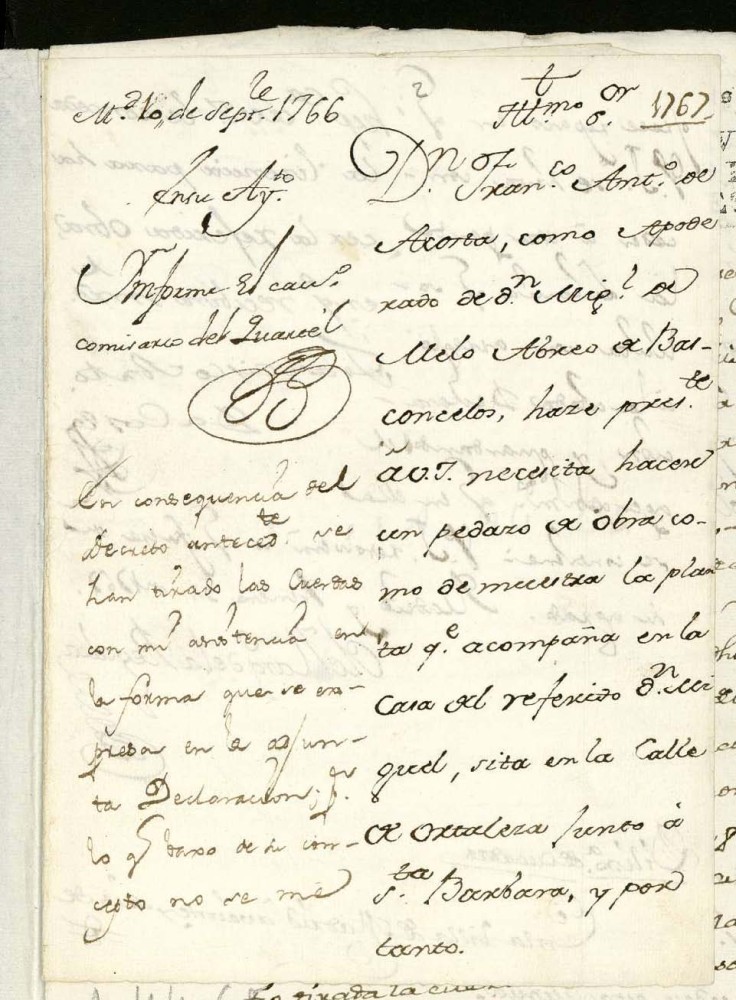 M.ᵈ 10,, de Sepᵗʳᵉ. 1766
En su Ayᵗᵒ.
Informe El cavᵒ.
comisario del Quartel
En consequencia del
decreto anteced.ᵗᵉ se
han tirado las Cuerdas
con mi asistencia en
la forma que se ex-
presa en la adjun-
ta Declaracion; p.ʳ
lo q̃ dado de su con-
cepto no se me
2
1767
Ill.ᵐᵒ S.ᵒʳ
D.ⁿ Fran.ᶜᵒ Ant.ᵒ de
Acosta, como Apode
rado de d.ⁿ Mig.ˡ de
Melo Abreo de Bas-
concelos, haze pres.ᵗᵉ
à V.I. necesita hacer
un pedazo de obra co-
mo demuestra la plan
ta q.ᵉ acompaña en la
Casa del referido d.ⁿ Mi
guel, sita en la Calle
de ortaleza junto à
s.ᵗᵃ Barbara, y por
tanto.
tirada la cuer